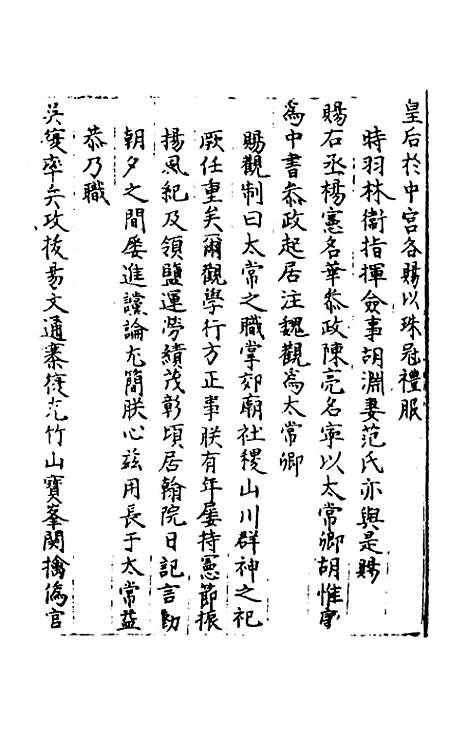 皇后於中宮各賜以珠冠禮服
時羽林衞指揮僉事胡淵妻范氏亦與是賜
賜右丞楊憲名華叅政陳亮名寧以太常卿胡惟庸
為中書叅政起居注魏觀為太常卿
賜觀制曰太常之職掌郊廟社稷山川群神之祀
厥任重矣爾觀學行方正事朕有年屡持憲節振
揚風紀及領鹽運勞績茂彰頃居翰院日記言動
朝夕之間屡進讜論尤簡朕心兹用長于太常益
恭乃職
吴復率兵攻後昜文通寨復克竹山寶峯関擒偽官